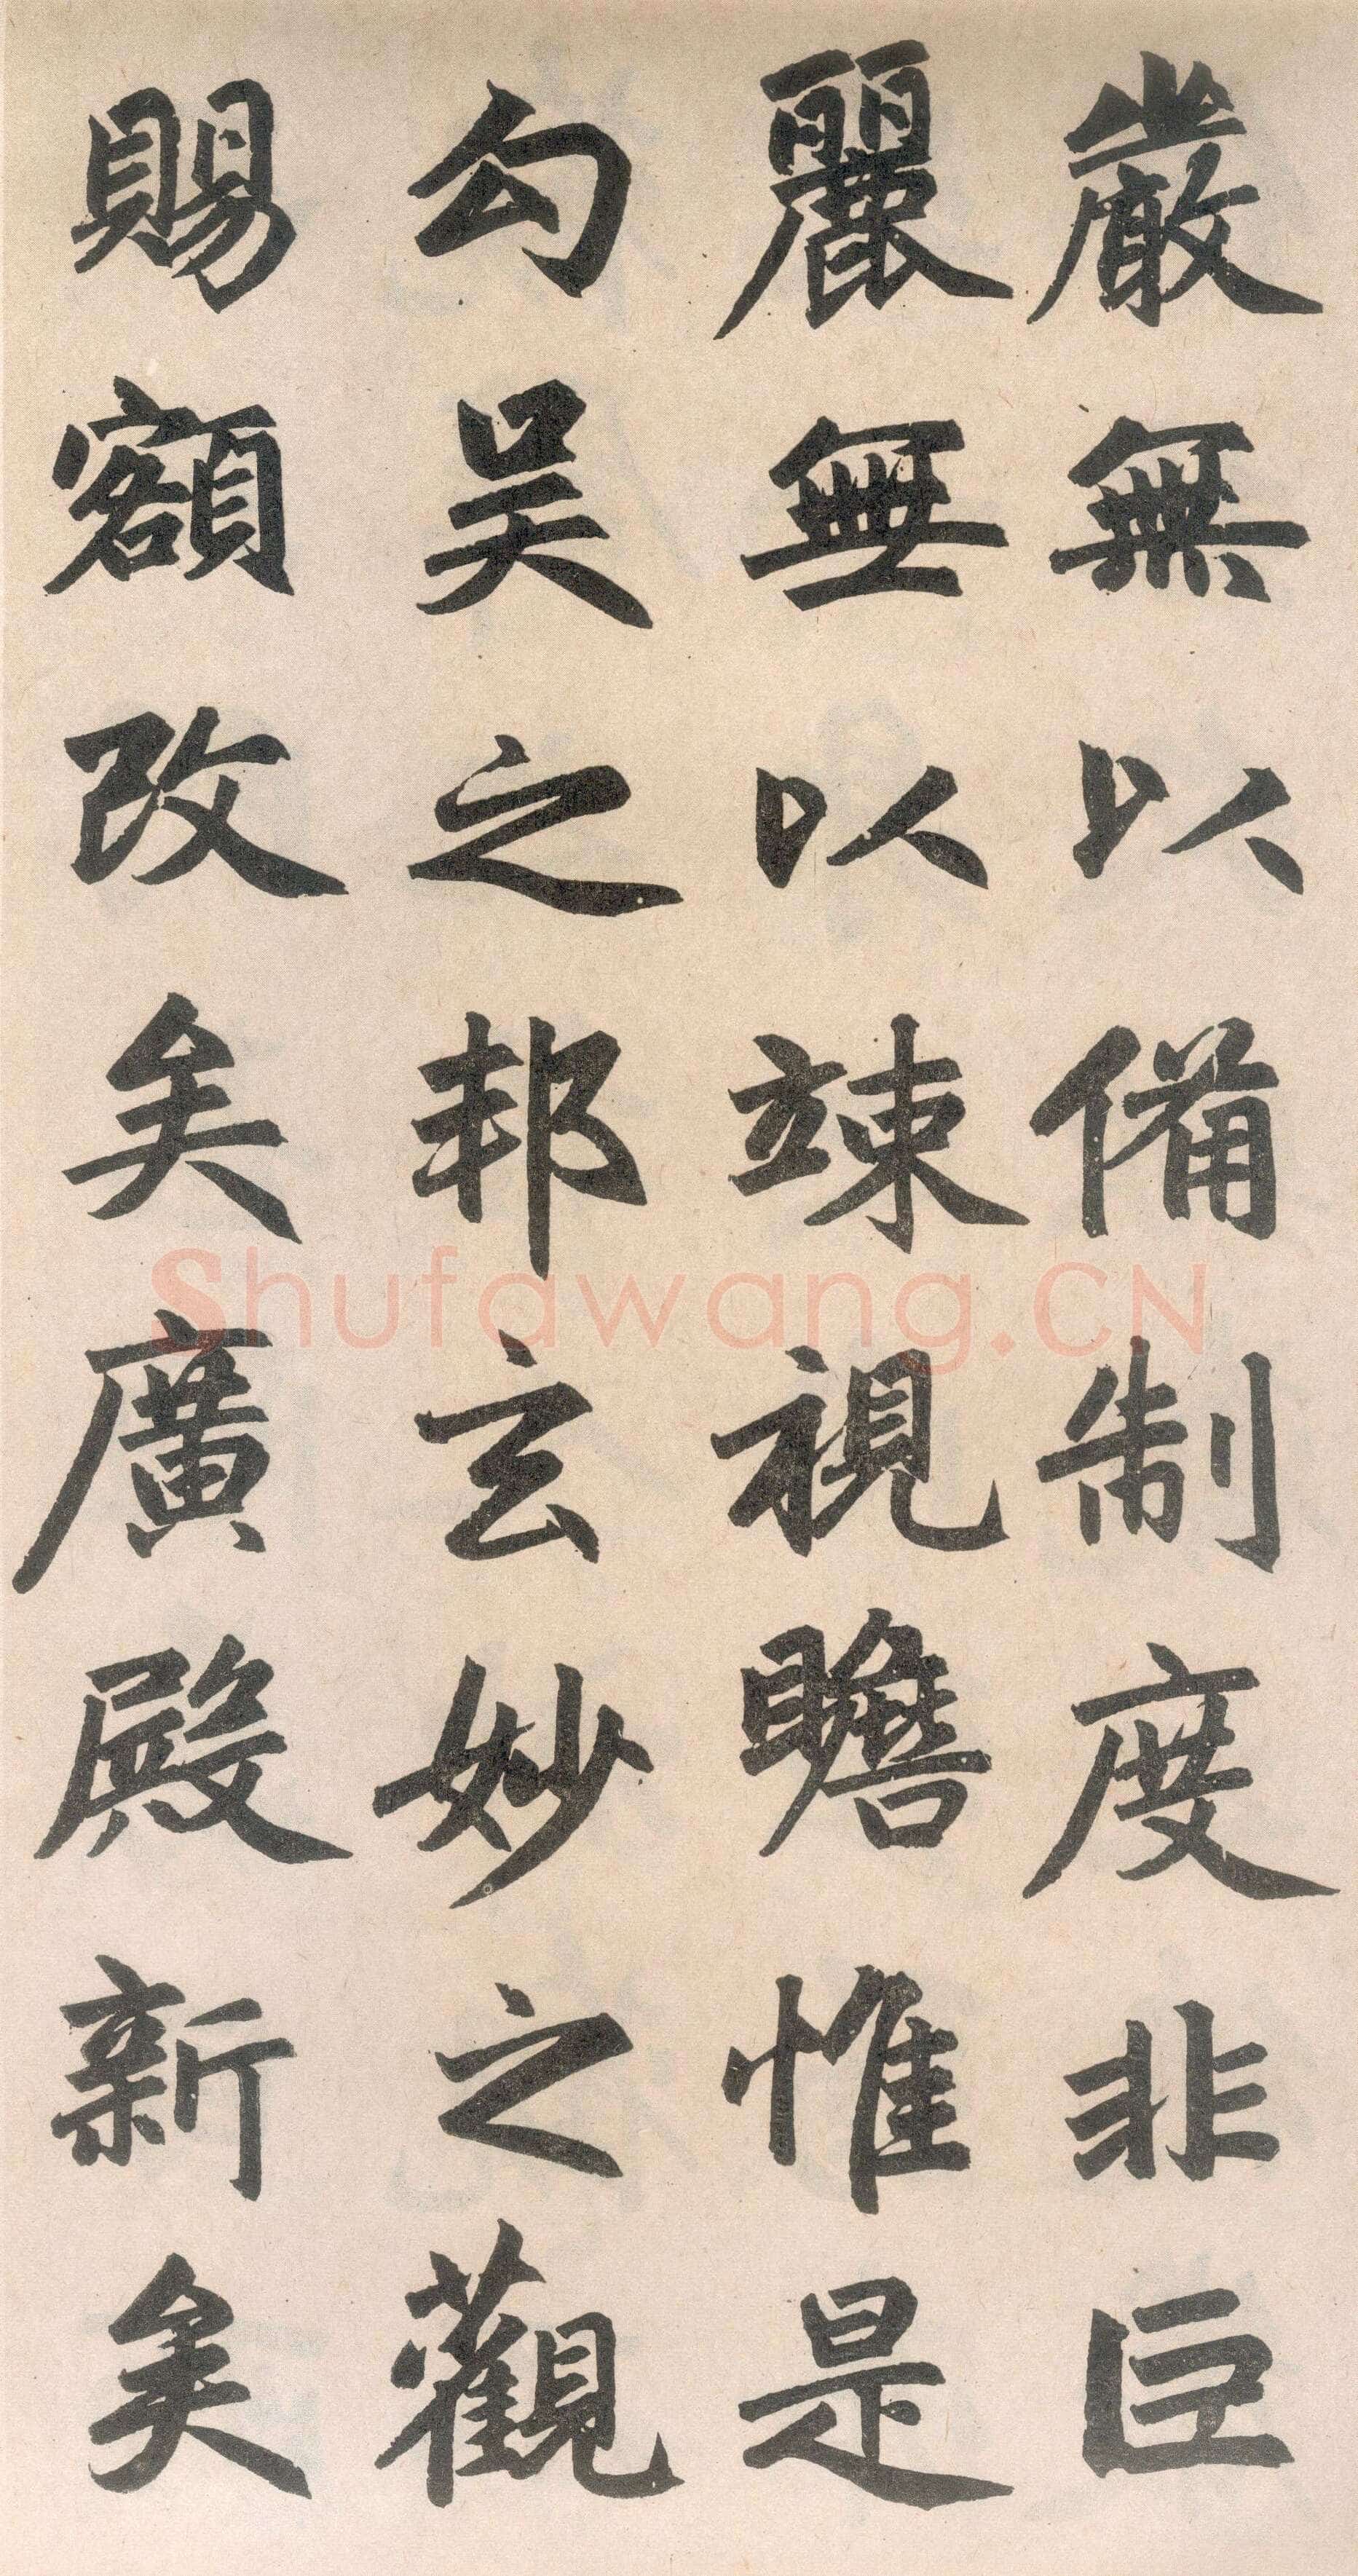 嚴無以備制度非巨
麗無以竦視瞻惟是
勾吴之邦玄妙之觀
賜額改矣廣殿新矣
Shufawang.CN